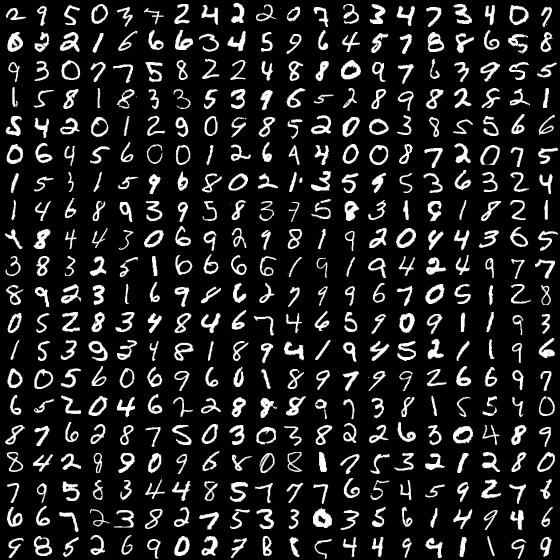 2 9 5 0 3 7 2 4 2 2 0 7 3 3 4 7 3 4 0 7
0 2 2 1 6 6 6 3 4 5 9 6 4 5 7 8 8 6 5 8
9 3 0 7 7 5 8 2 2 4 8 8 0 9 7 6 3 9 5 5
1 5 8 1 8 3 3 5 3 9 6 5 2 8 9 8 2 8 2 1
5 4 2 0 1 2 9 0 9 8 5 2 0 0 3 8 5 5 6 6
0 6 4 5 6 0 0 1 2 6 1 4 0 0 8 7 2 0 7 5
1 5 3 1 5 9 6 8 0 2 1 3 5 9 5 3 6 3 2 4
1 4 6 8 9 3 9 5 8 3 7 5 8 3 1 8 1 8 2 1
4 8 4 4 3 0 6 9 2 9 8 1 9 2 0 4 4 3 6 5
3 8 3 2 5 1 6 6 6 6 1 9 1 9 4 2 4 9 7 7
8 9 2 3 1 6 9 8 6 2 7 9 9 6 7 0 5 1 2 8
0 5 2 8 3 4 8 4 6 7 4 6 5 9 0 9 1 1 9 3
1 5 3 9 3 4 8 1 8 9 4 1 9 4 5 2 1 1 9 6
0 0 5 6 0 6 9 6 0 1 8 9 7 9 9 2 6 6 9 7
6 5 2 0 4 6 2 2 8 8 8 9 7 3 8 1 5 5 4 0
8 7 6 2 8 7 5 0 3 0 3 8 2 2 6 3 0 4 8 9
8 4 2 8 9 0 9 6 8 0 8 1 7 5 3 2 1 2 8 0
7 9 5 8 3 4 4 8 5 7 7 7 6 5 4 5 9 2 7 8
6 6 7 2 3 8 2 7 5 3 3 0 3 5 6 1 4 9 4 6
9 8 5 2 6 9 0 2 7 8 1 5 4 4 9 4 1 1 9